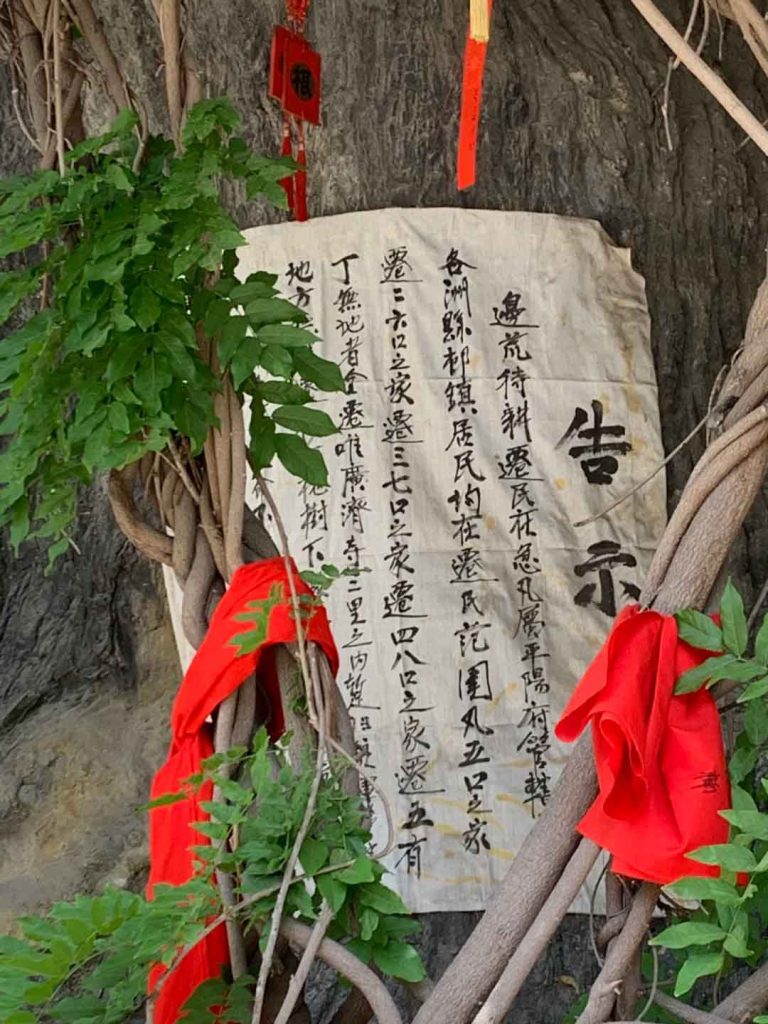 福
告示
邊荒待耕遷民在急凡屬平陽府管轄
各洲縣邨鎮居民均在遷民范圍凡五口之家
遷二六口之家遷三七口之家遷四八口之家遷五有
丁無地者全遷唯廣濟寺二里之内暫
地方 槐樹下